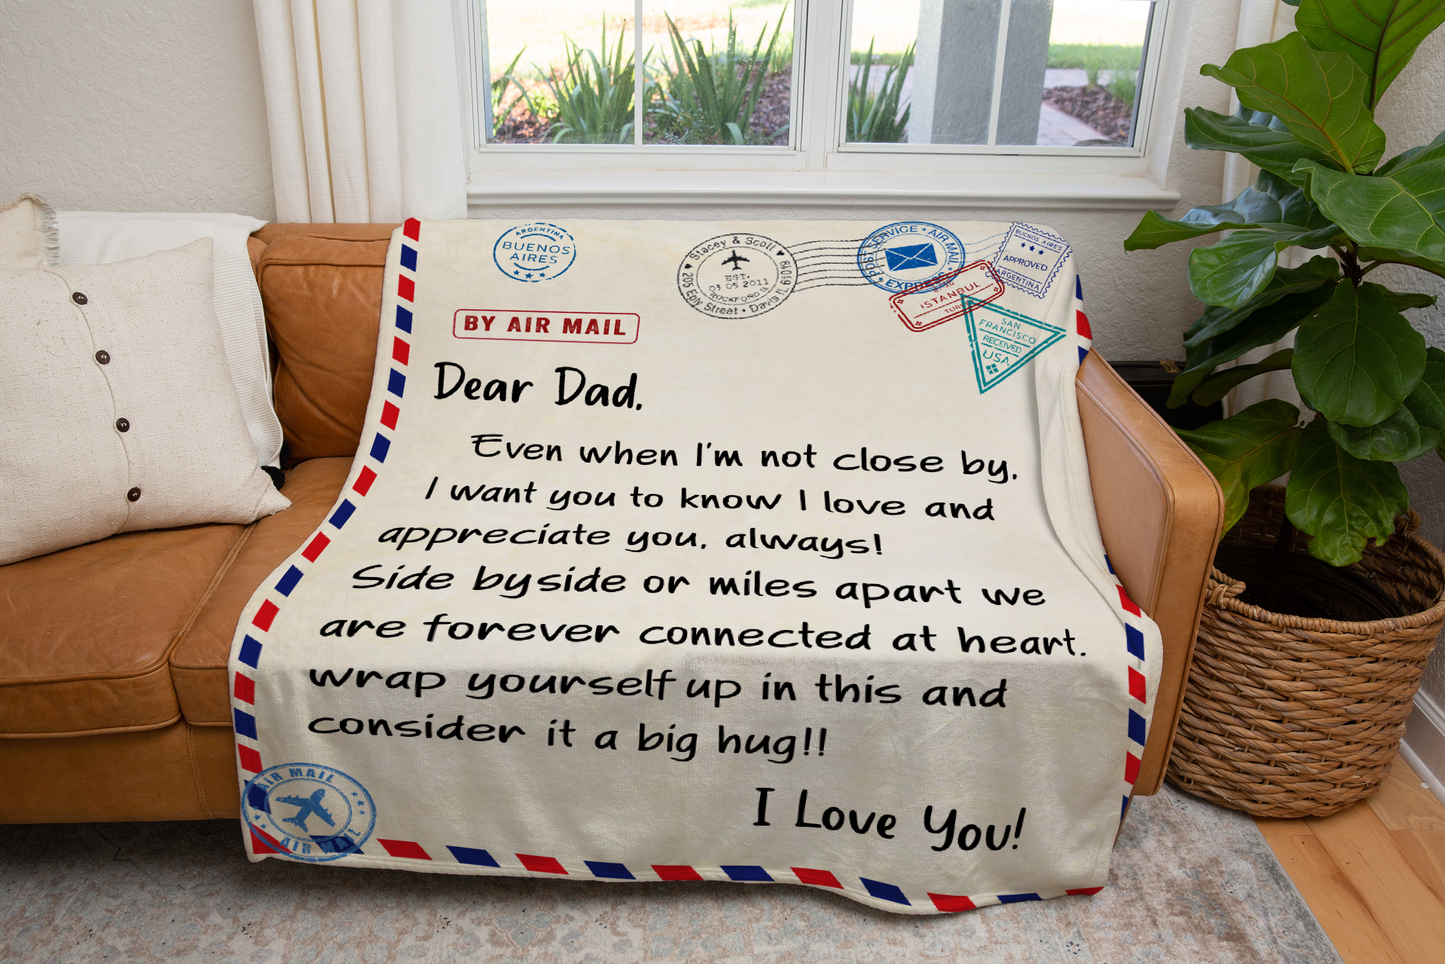 ARGENTINA
BUENOS
AIRES
Stacey & Scott
EST.
03 05 2011
ROCKFORD IL
205 Eply Street • Davis IL 61019
POST SERVICE • AIR MAIL
EXPRESS
BUENOS AIRES
APPROVED
ARGENTINA
ISTANBUL
SAN
FRANCISCO
RECEIVED
USA
BY AIR MAIL
Dear Dad,
Even when I'm not close by,
I want you to know I love and
appreciate you, always!
Side by side or miles apart we
are forever connected at heart.
wrap yourself up in this and
consider it a big hug!!
I Love You!
AIR MAIL
AIR MAIL